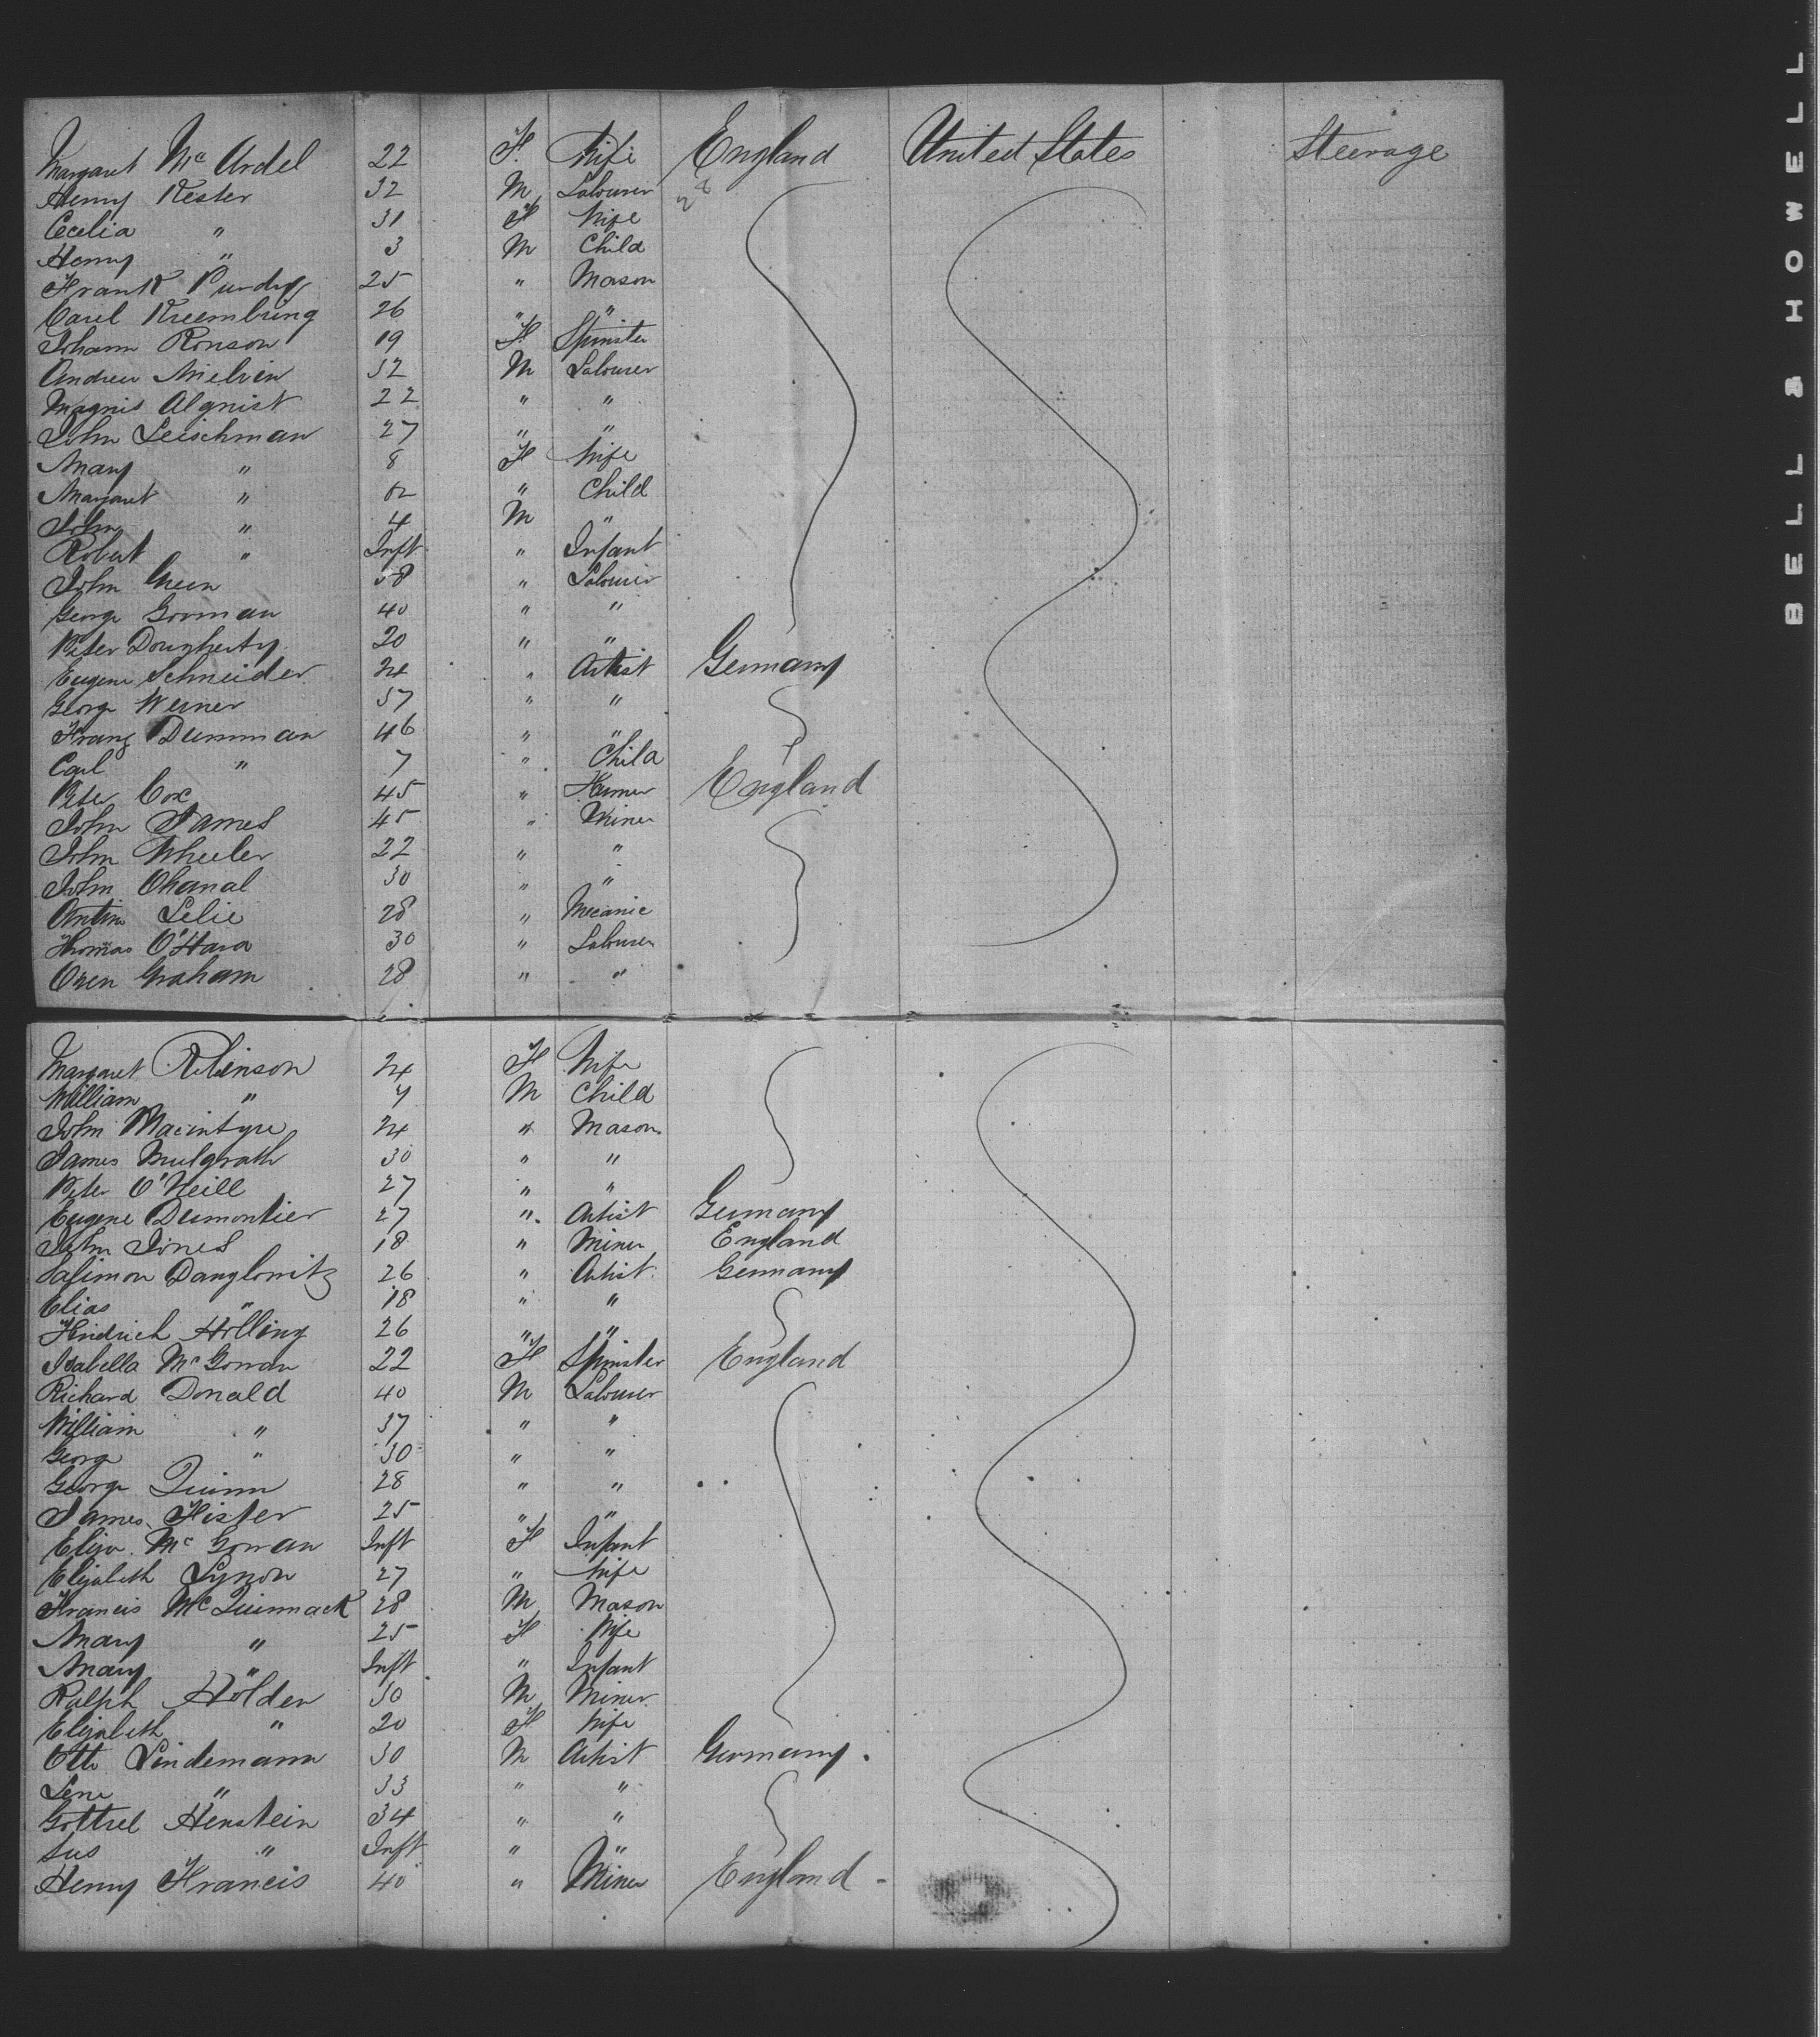 Margaret McArdel 22 F. Wife England United States Steerage
Henry Kester 32 M Labourer 28
Cecilia " 31 F Wife
Henry " 3 M Child
Frank Purdy 25 " Mason
Carel Kreembring 26 " "
Johann Ronson 19 F. Spinster
Andrew Nielvin 32 M Labourer
Magnis Alqnist 22 " "
John Leischman 27 " "
Mary " 8 F Wife
Margaret " " Child
John " 4 M "
Robert " Inft " Infant
John Green 38 " Labourer
George Gorman 40 " "
Peter Dougherty 20 " "
Eugene Schneider 24 " Artist Germany
George Werner 37 " "
Franz Dumman 46 " "
Carl " 7 " Child
Peter Cox 45 " Farmer England
John James 45 " Miner
John Wheeler 22 " "
John Ohanal 30 " "
Antin Lelie 28 " Mecanic
Thomas O'Hara 30 " Labourer
Owen Graham 28 " "
Margaret Robinson 24 F Wife
William " 4 M Child
John Macintyre 24 " Mason
James Mulgrath 30 " "
Peter O'Neill 27 " "
Eugene Dumontier 27 " Artist Germany
John Jones 18 " Miner England
Salimon Danglowitz 26 " Artist Germany
Elias " 18 " "
Hindrich Holling 26 " "
Isabella McGowan 22 F Spinster England
Richard Donald 40 M Labourer
William " 37 " "
George " 30 " "
George Quinn 28 " "
James Fister 25 " "
Eliza McGowan Inft F Infant
Elizabeth Lyzon 27 " Wife
Francis McQuinmack 28 M Mason
Mary " 25 F Wife
Mary " Inft " Infant
Ralph Holden 30 M Miner
Elizabeth " 20 F Wife
Otto Lindemann 30 M Artist Germany.
Lene " 33 " "
Gottrel Henstein 34 " "
Sus " Inft " "
Henry Francis 40 " Miner England
BELL & HOWELL